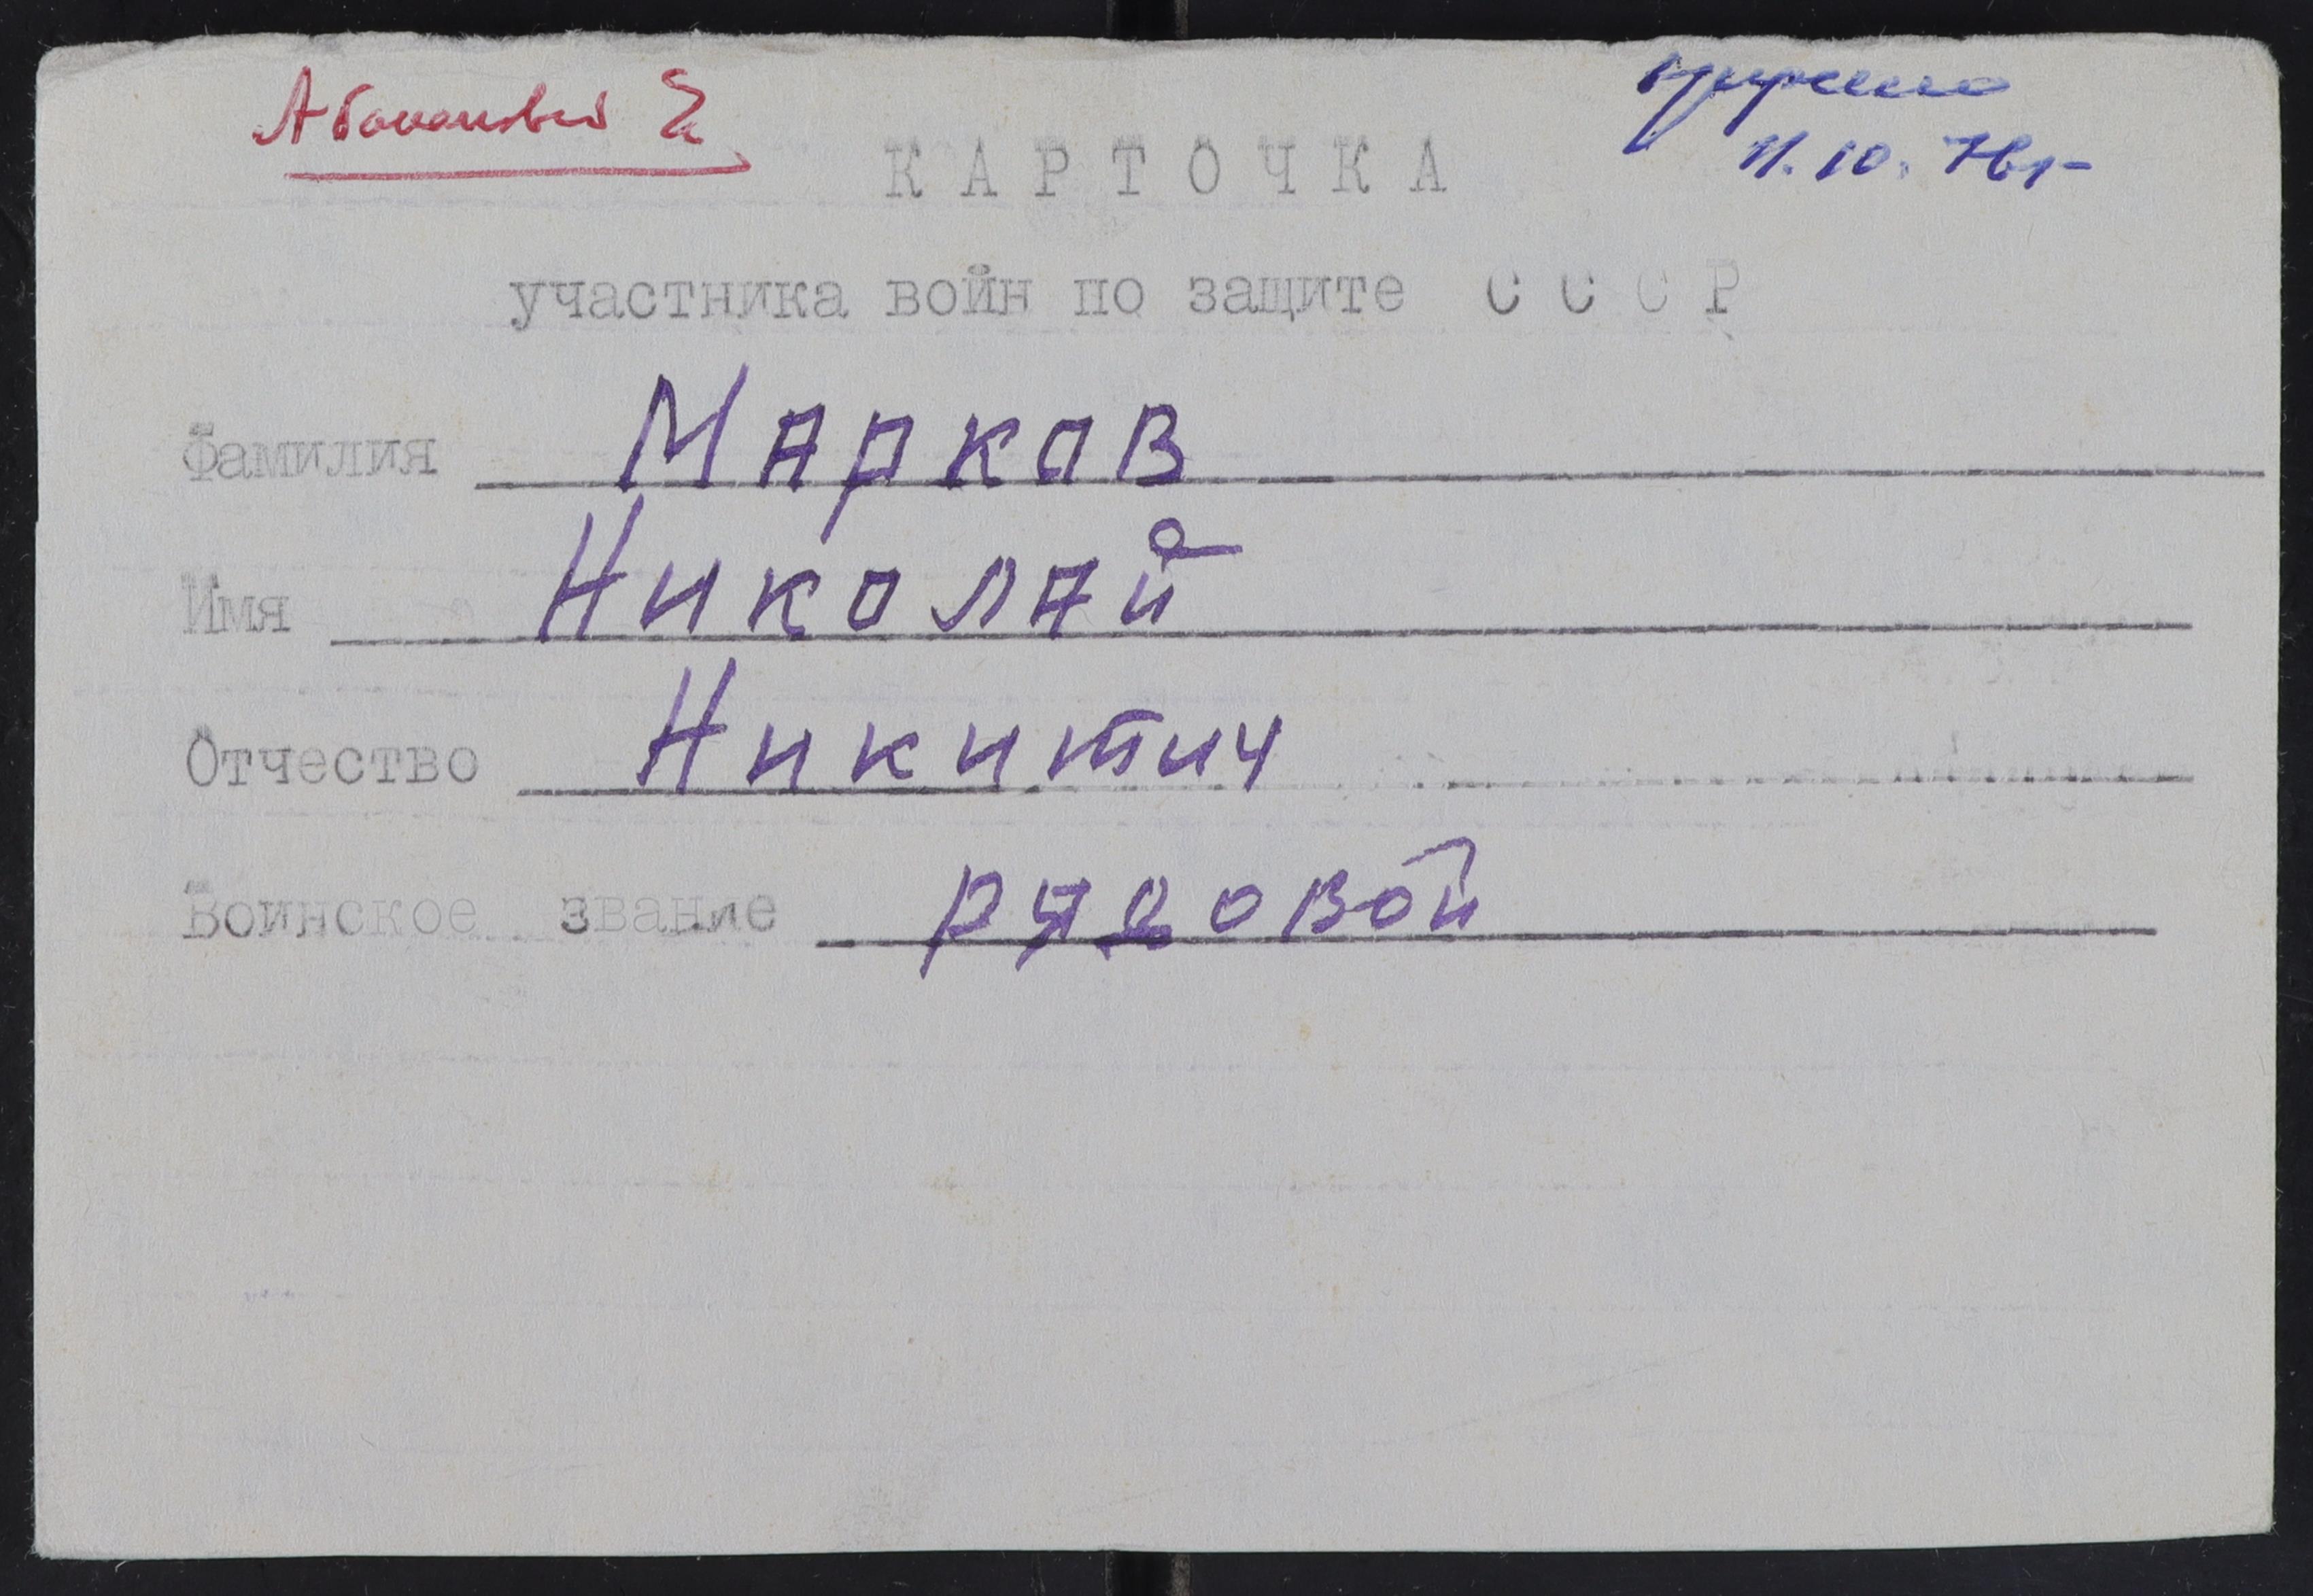 К А Р Т О Ч К А
11.10.76г
участника войн по защите С С С Р
Фамилия Марков
Имя Николай
Отчество Никитич
Воинское звание рядовой